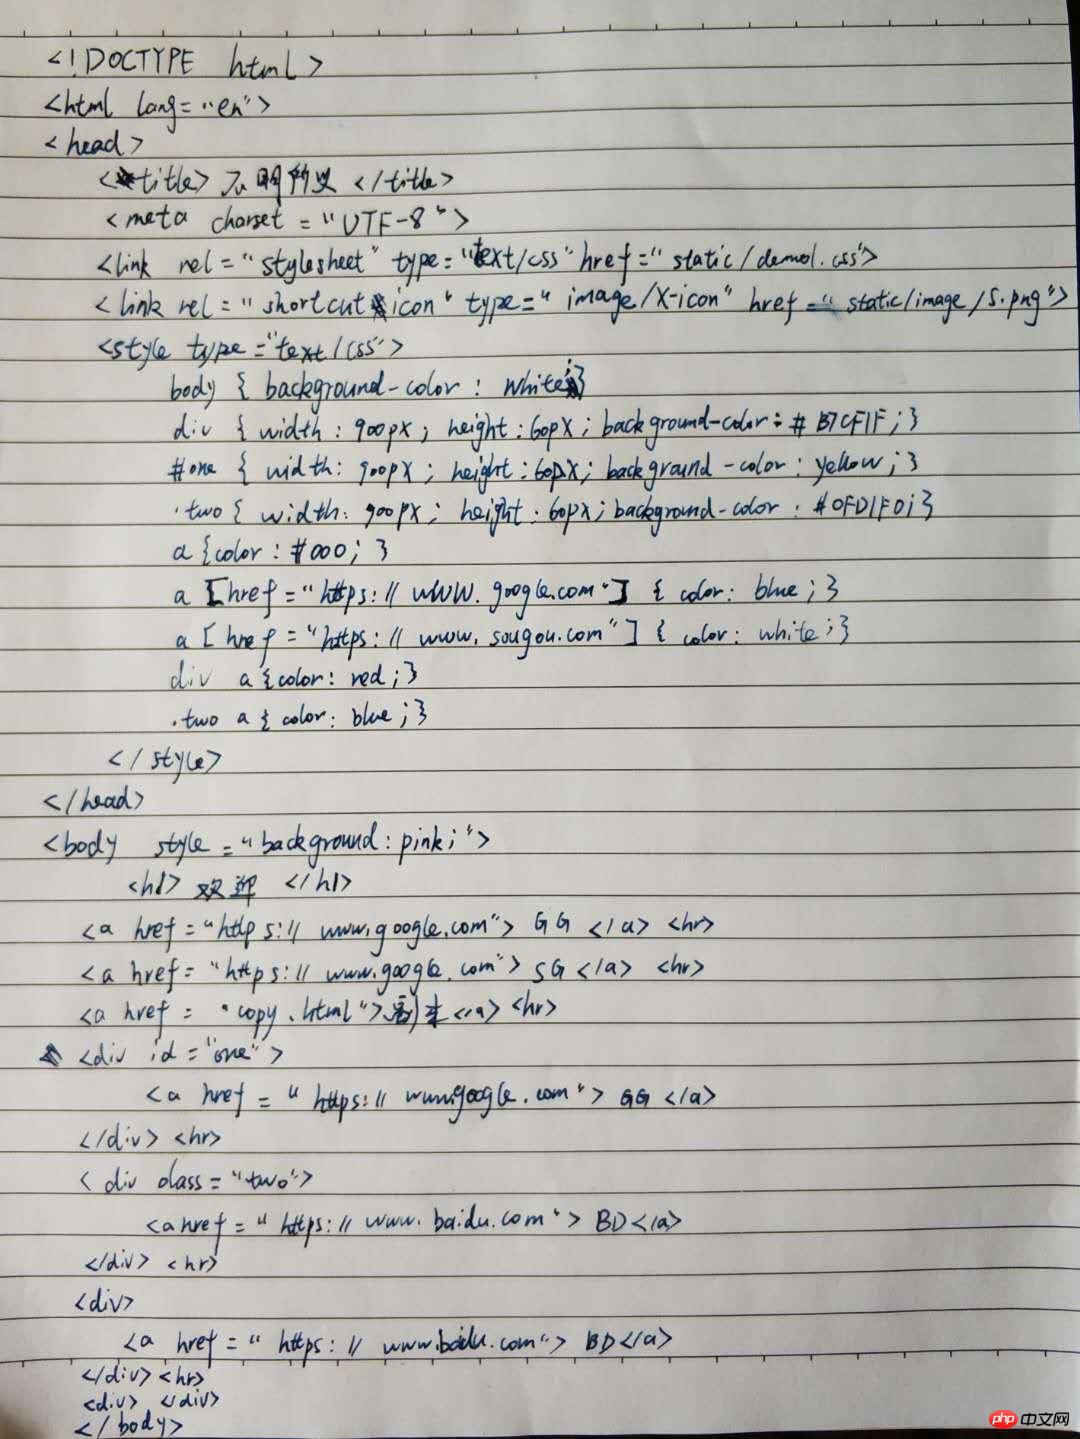 <!DOCTYPE html>
<html lang="en">
<head>
<title>不明所以</title>
<meta charset="UTF-8">
<link rel="stylesheet" type="text/css" href="static/demo1.css">
<link rel="shortcut icon" type="image/x-icon" href="static/image/s.png">
<style type="text/css">
body { background-color : white;}
div { width : 900px ; height : 60px ; background-color : # B7CF1F ; }
#one { width: 900px ; height : 60px; background-color : yellow ; }
.two { width: 900px ; height : 60px ; background-color : #0FD1F0; }
a {color : #000; }
a [href="https://www.google.com"] { color: blue ; }
a [href="https://www.sougou.com"] { color: white ; }
div a {color: red ; }
.two a { color: blue ; }
</style>
</head>
<body style="background: pink;">
<h1> 欢迎 </h1>
<a href="https://www.google.com"> GG </a> <hr>
<a href="https://www.google.com"> SG </a> <hr>
<a href= "copy.html"> </a> <hr>
<div id="one">
<a href="https://www.google.com"> GG </a>
</div> <hr>
<div class="two">
<a href="https://www.baidu.com"> BD </a>
</div> <hr>
<div>
<a href="https://www.baidu.com"> BD </a>
</div> <hr>
<div> </div>
</body>
php 中文网